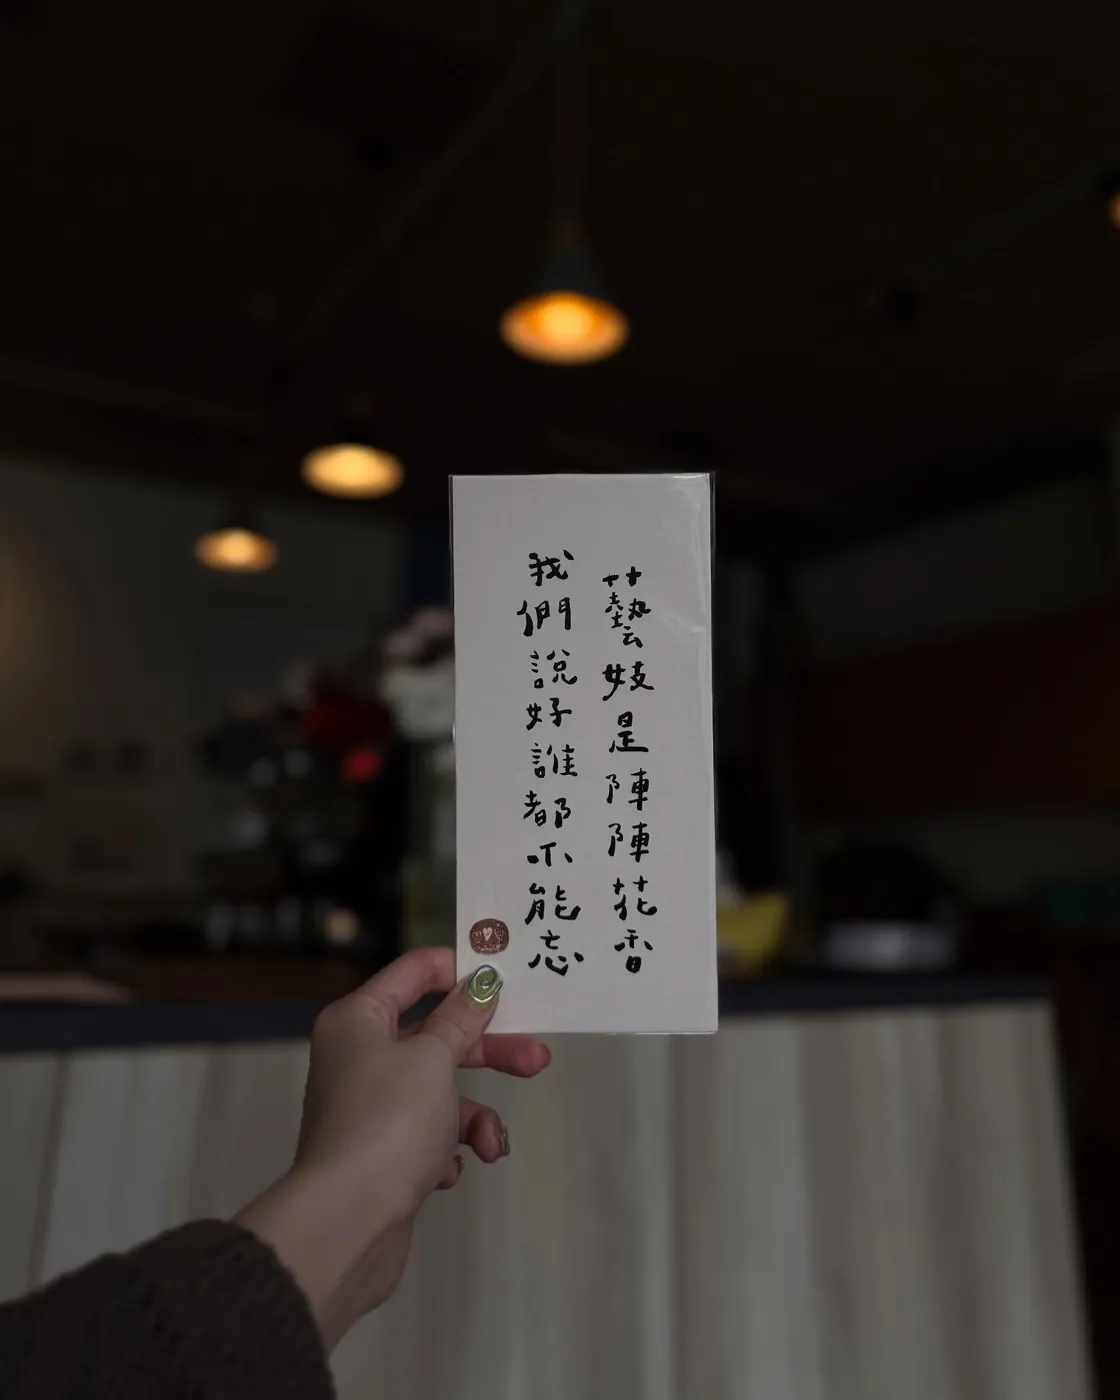 藝妓是陣陣花香
我們說好誰都不能忘